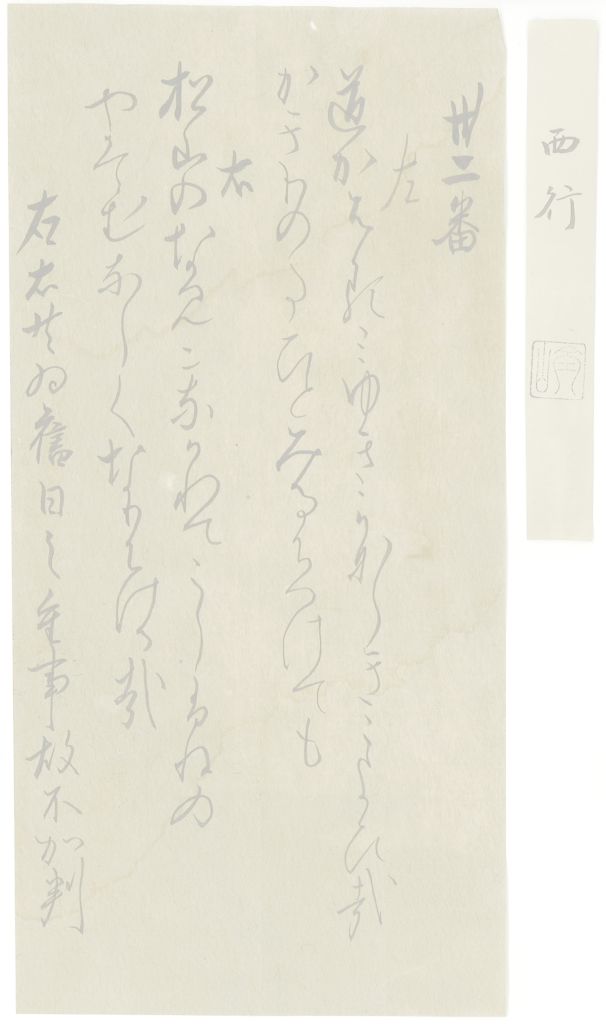 西行
卅二番
左
道かはるミゆきかなしきこよひ哉
かきりのたひとみるにつけても
右
松山のなみになかれてこしふねの
やかてむなしくなりにける哉
左右共為舊日之重事故不加判